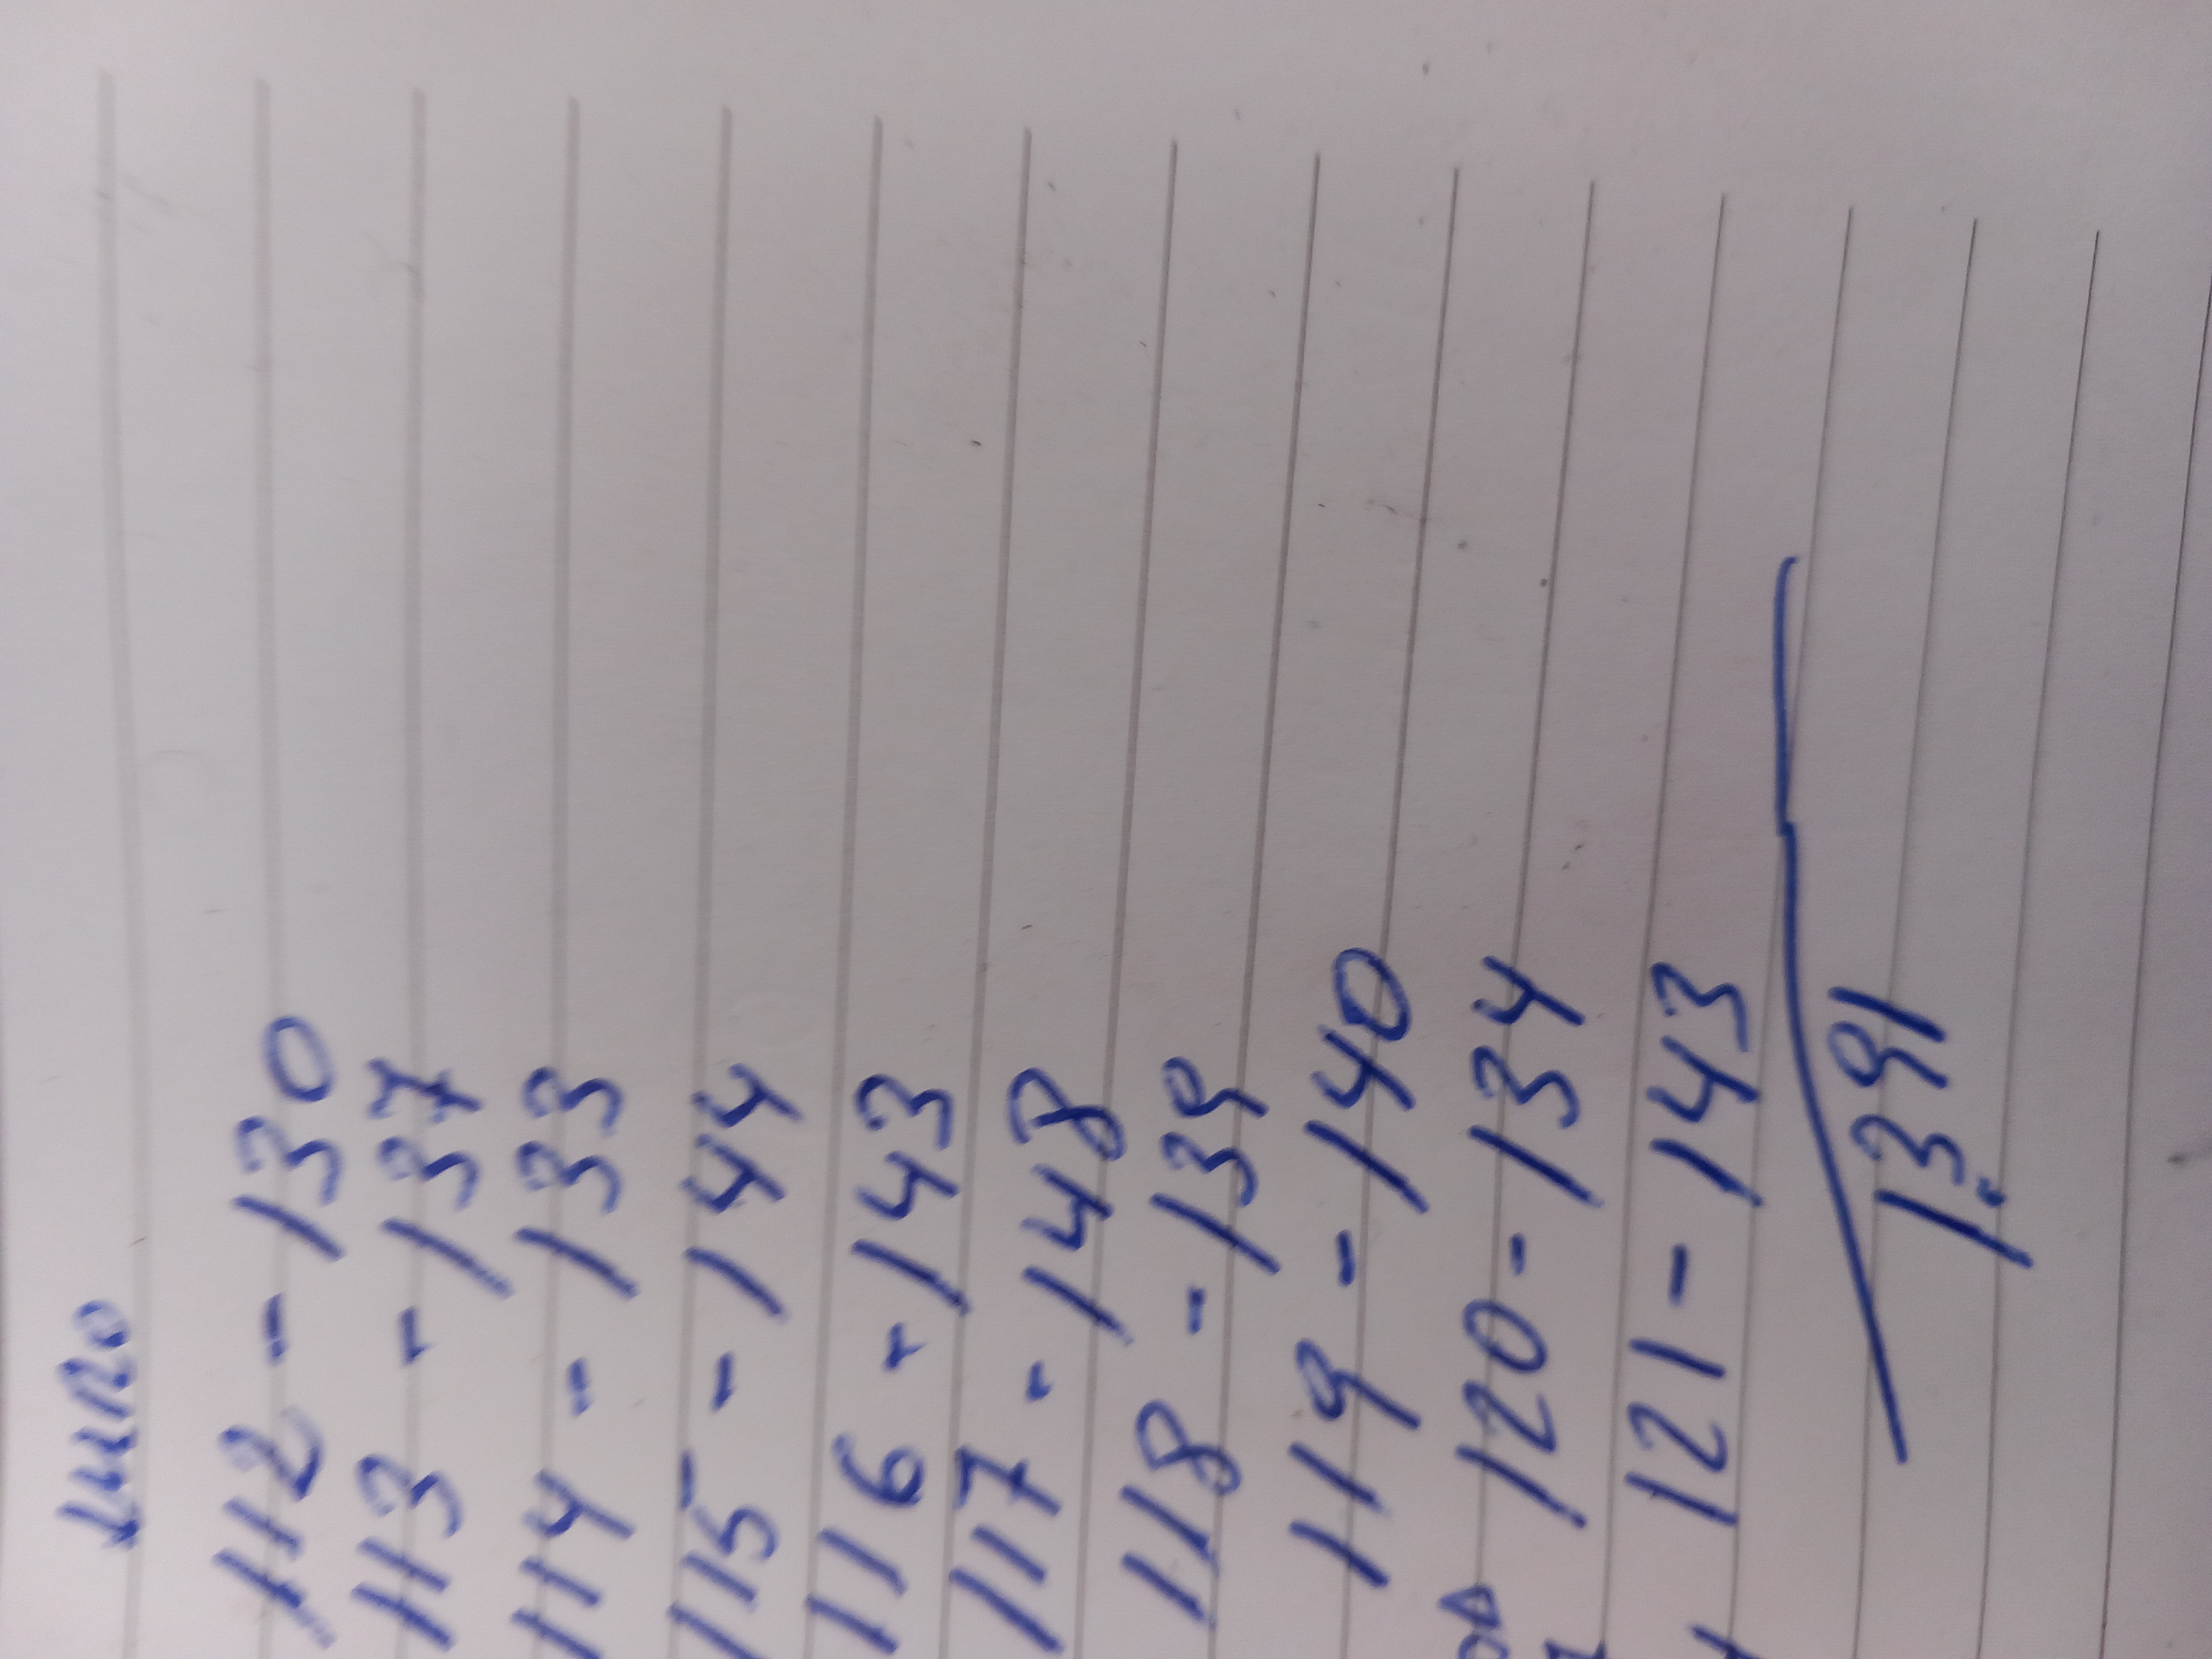 112 - 130
113 - 137
114 - 133
115 - 144
116 - 143
117 - 148
118 - 139
119 - 140
120 - 134
121 - 143
1391